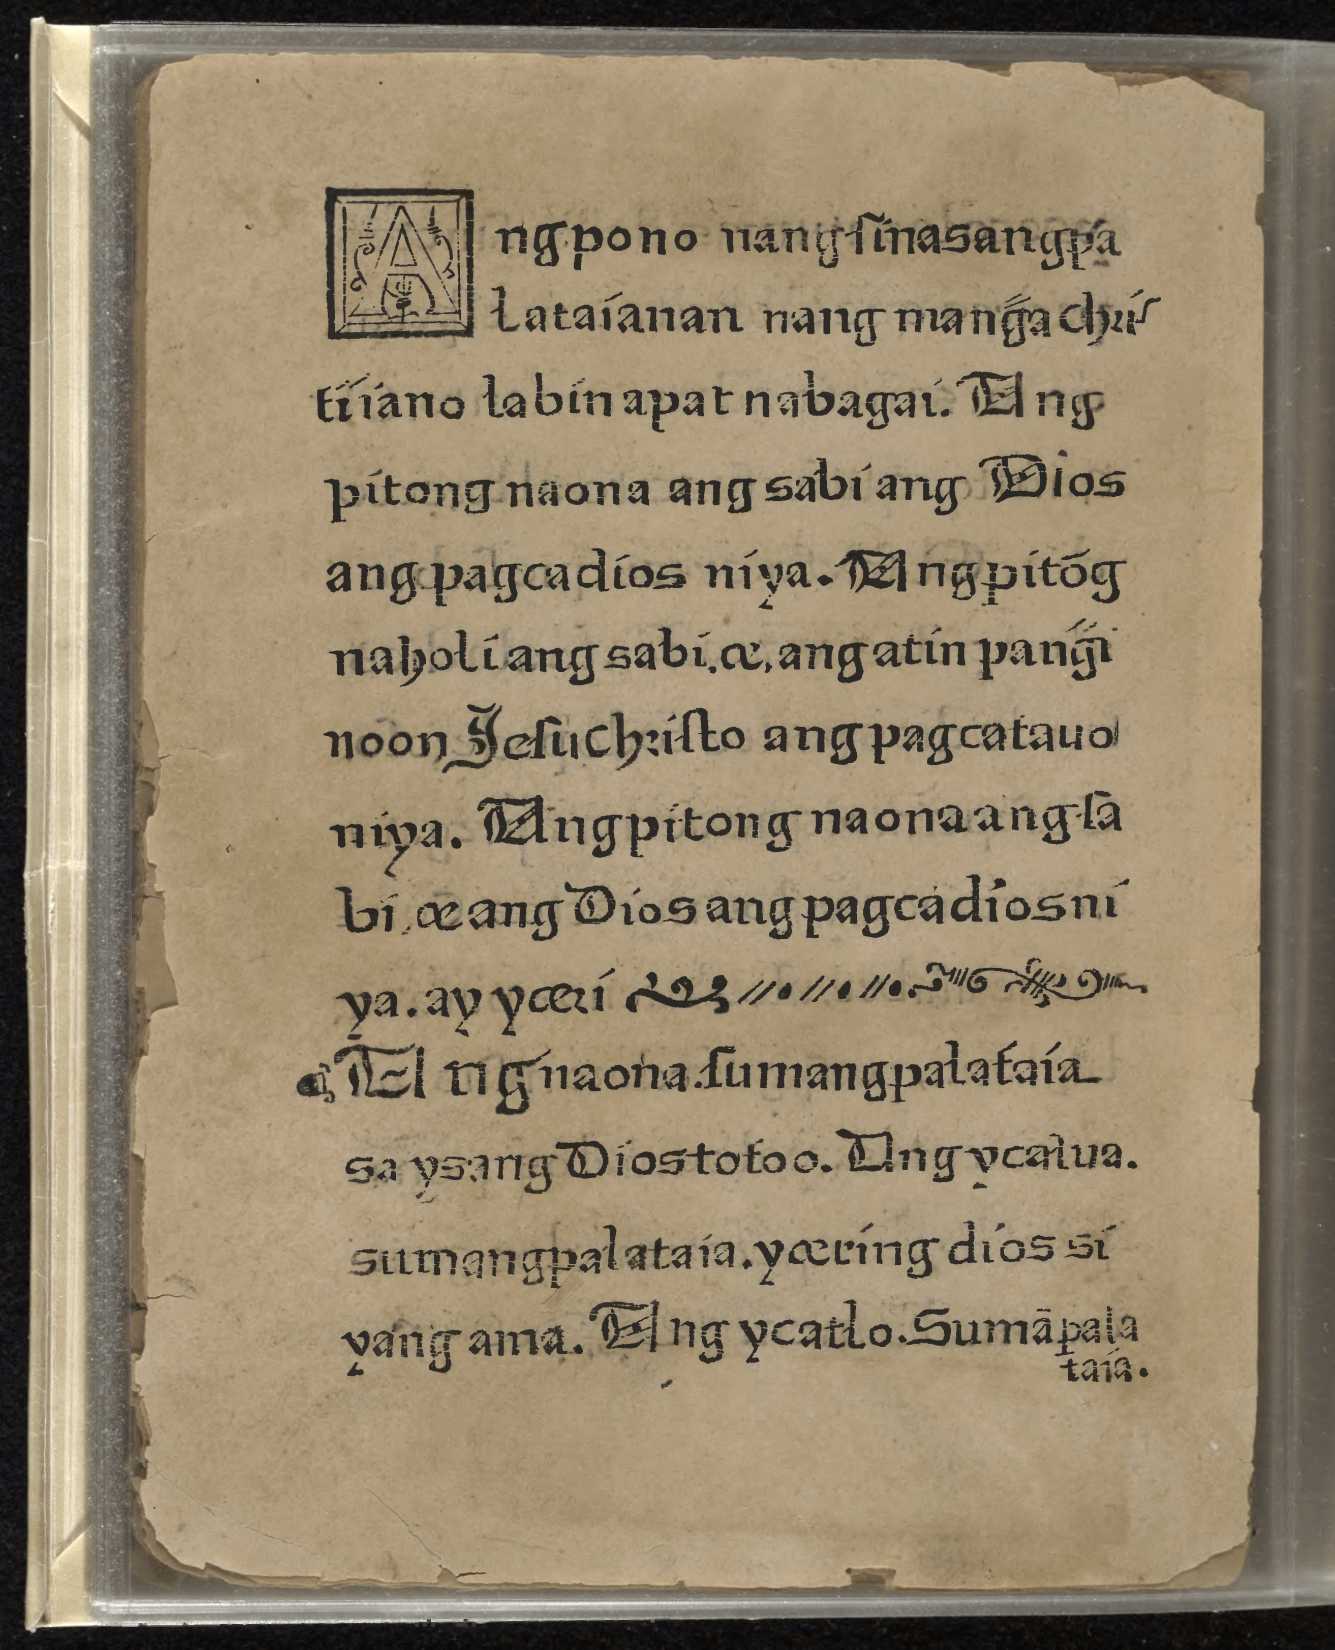 Ang pono nang sinasangpa
lataianan nang mang̃a chris
tiiano labin apat na bagai. Ang
pitong naona ang sabi ang Dios
ang pagcadios niya. Ang pitõg
naholi ang sabi, æ, ang atin pang̃i
noon Jesuchristo ang pagcatauo
niya. Ang pitong naona ang sa
bi, æ ang Dios ang pagcadios ni
ya. ay yæri
Ang naona. sumangpalataia
sa ysang Dios totoo. Ang ycalua.
sumangpalataia. yæring dios si
yang ama. Ang ycatlo. Sumãpala
taia.